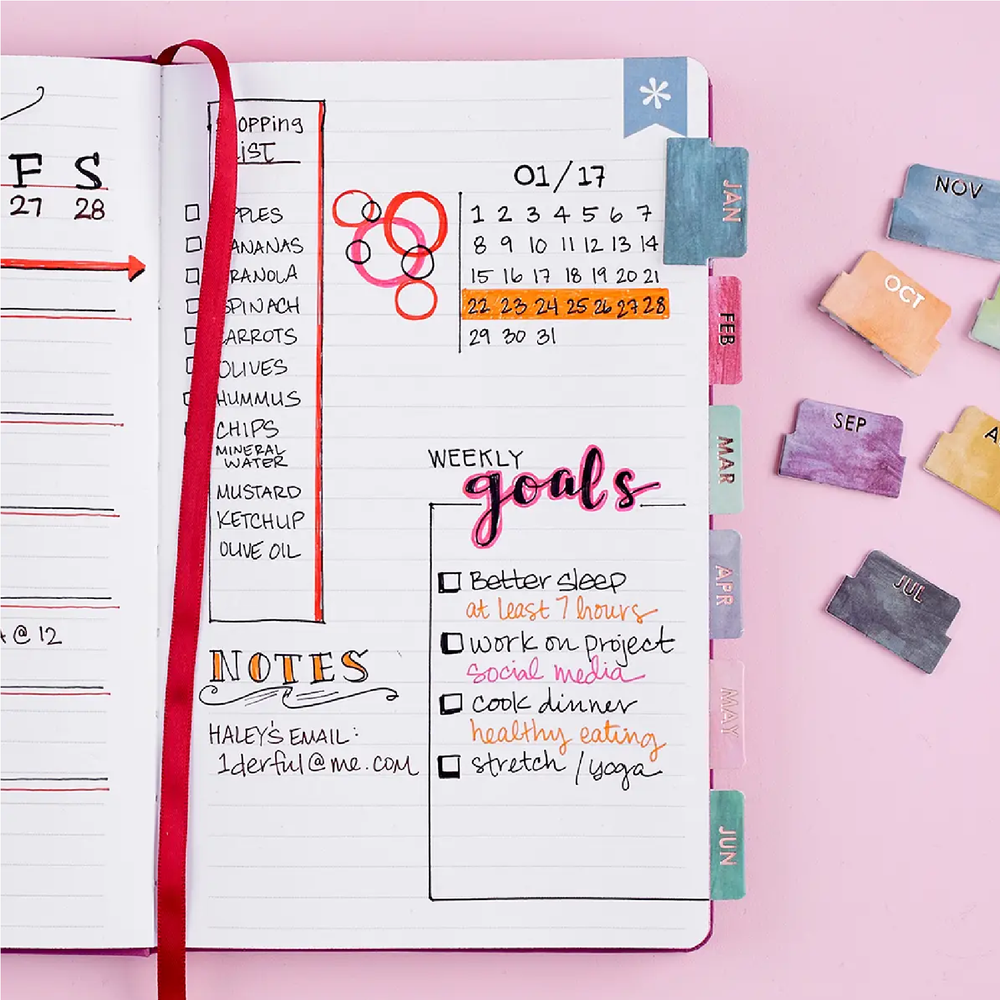 F S
27 28
@ 12
opping
IST
PPLES
ANANAS
RANOLA
SPINACH
ARROTS
OLIVES
HUMMUS
CHIPS
MINERAL
WATER
MUSTARD
KETCHUP
OLIVE OIL
NOTES
HALEY'S EMAIL:
1derful@me.com
01/17
1 2 3 4 5 6 7
8 9 10 11 12 13 14
15 16 17 18 19 20 21
22 23 24 25 26 27 28
29 30 31
WEEKLY
goals
Better sleep
at least 7 hours
work on project
social media
cook dinner
healthy eating
stretch / yoga
JAN
FEB
MAR
APR
MAY
JUN
NOV
OCT
SEP
A
JUL